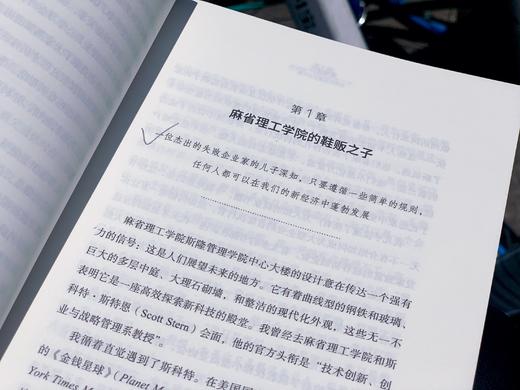 第1章
麻省理工学院的鞋贩之子
一位杰出的失败企业家的儿子深知，只要遵循一些简单的规则，
任何人都可以在我们的新经济中蓬勃发展
麻省理工学院斯隆管理学院中心大楼的设计意在传达一个强有
力的信号：这是人们展望未来的地方。它有着曲线型的钢铁和玻璃、
巨大的多层中庭、大理石砌墙，和整洁的现代化外观，这些无一不
表明它是一座高效探索新科技的殿堂。我曾经去麻省理工学院和斯
科特·斯特恩（Scott Stern）会面，他的官方头衔是“技术创新、创
业与战略管理系教授”。
我循着直觉遇到了斯科特。在美国国
的《金钱星球》（Planet M
York Times M